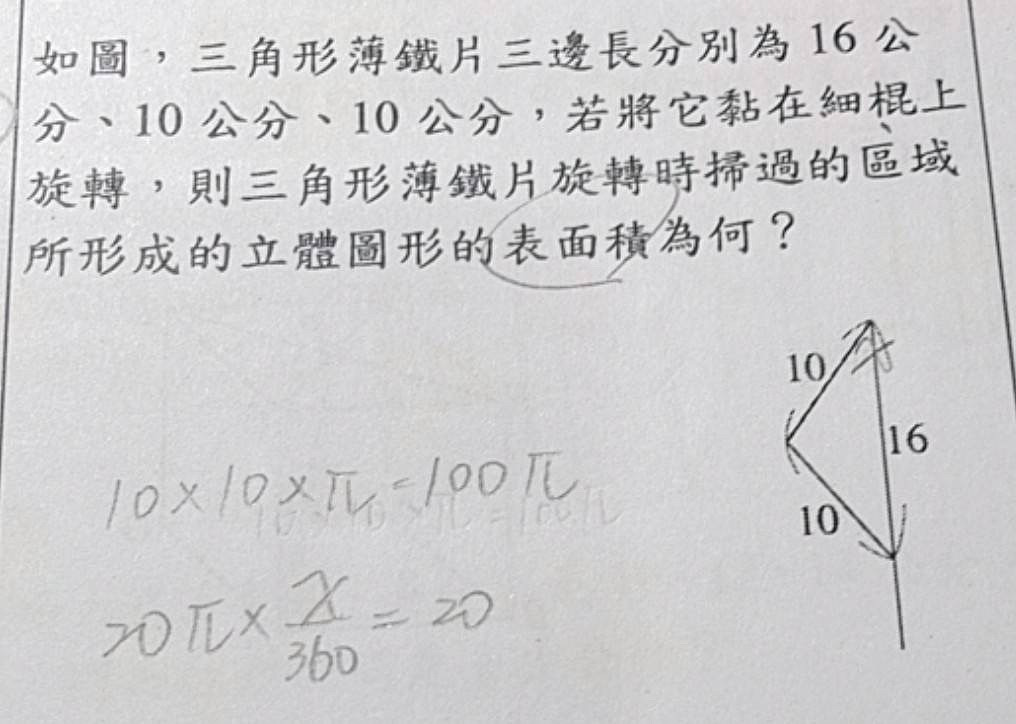 如圖，三角形薄鐵片三邊長分別為 16 公
分、10 公分、10 公分，若將它黏在細棍上
旋轉，則三角形薄鐵片旋轉時掃過的區域
所形成的立體圖形的表面積為何？
10
16
10
10×10×π=100π
20π×x/360=20